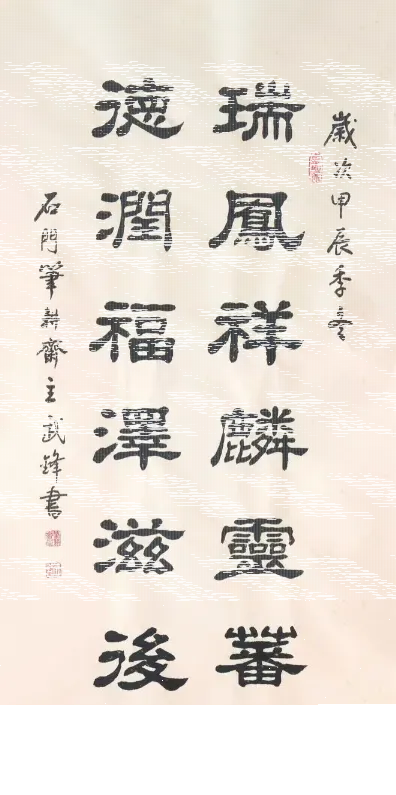 歲次甲辰季春
瑞鳳祥麟靈蕃
德潤福澤滋後
石門筆耕齋主武鋒書